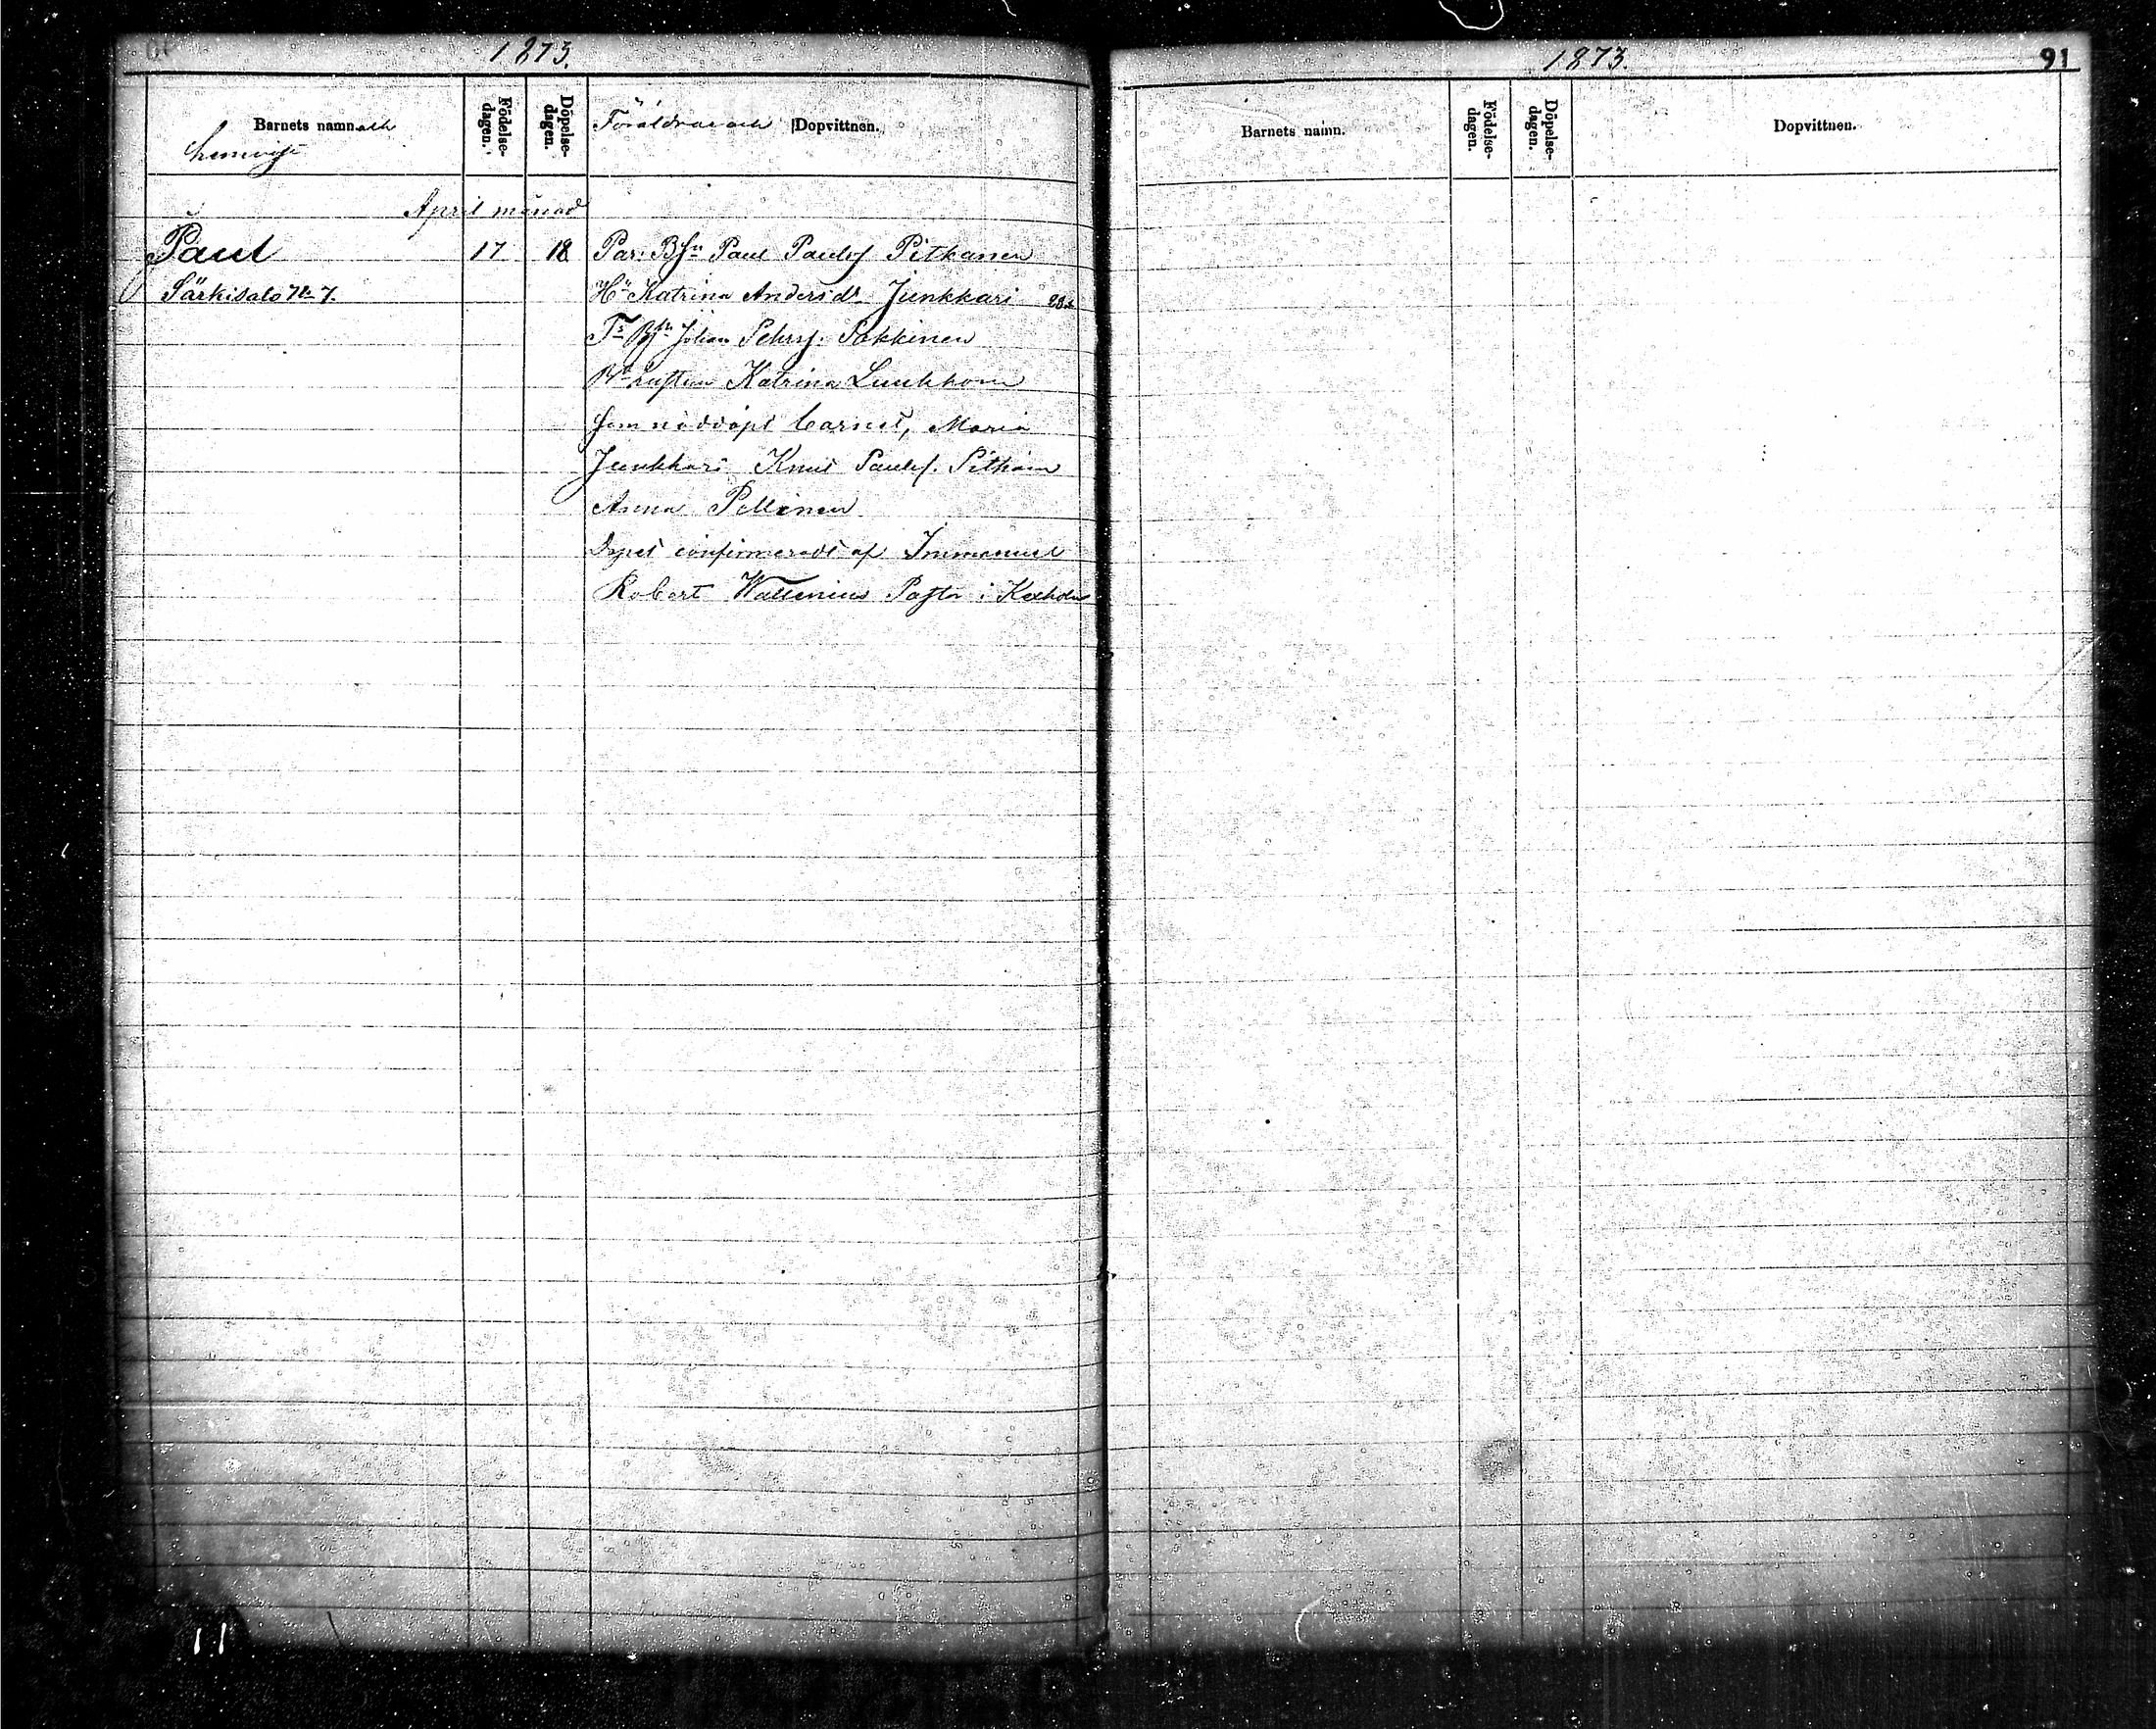 1873.
Barnets namn och
hemvist
Födelse-
dagen.
Döpelse-
dagen.
Föräldrar och Dopvittnen.
April månad
Paul 17 18 Par: Bsn Paul Paulss Pitkänen
Särkisalo No 7. Hu Katrina Andersdr Junkkari 28
Ts Bsn Johan Pehrss. Pakkinen
Katrina Luukkoin
som nöddöpt barnet, Maria
Junkkari Knut Paulss. Pitkäin
Anna Pellinen
Dopet confirmeradt af Immanuel
Robert Wallenius Pastor i Kexholm
1873.
91
Barnets namn.
Födelse-
dagen.
Döpelse-
dagen.
Dopvittnen.
11